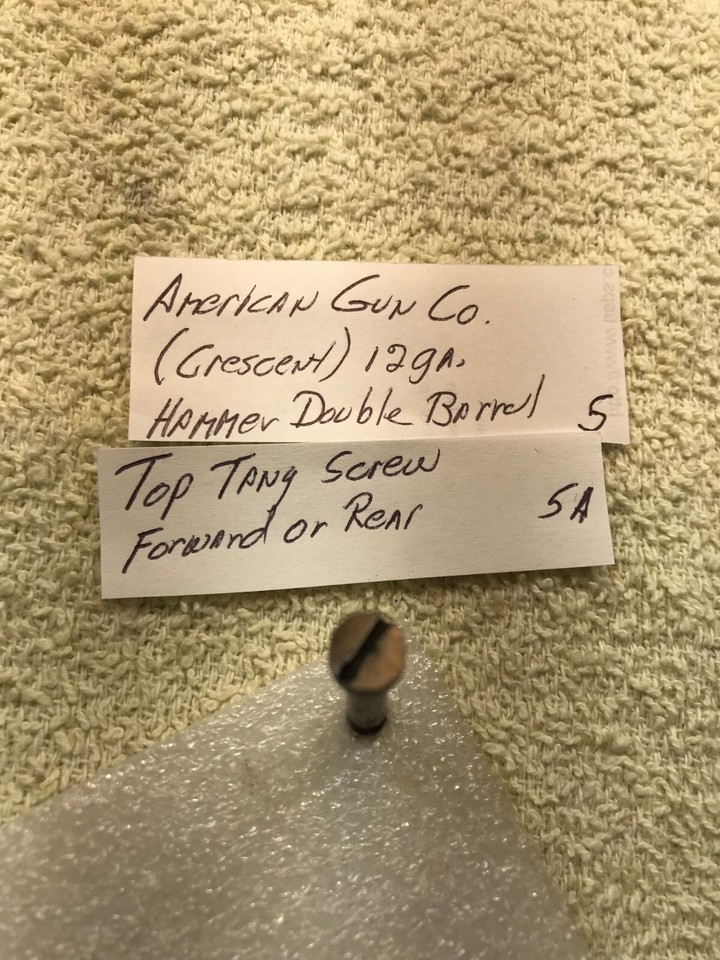 American Gun Co.
(Crescent) 12ga.
Hammer Double Barrel 5
Top Tang Screw
Forward or Rear 5A